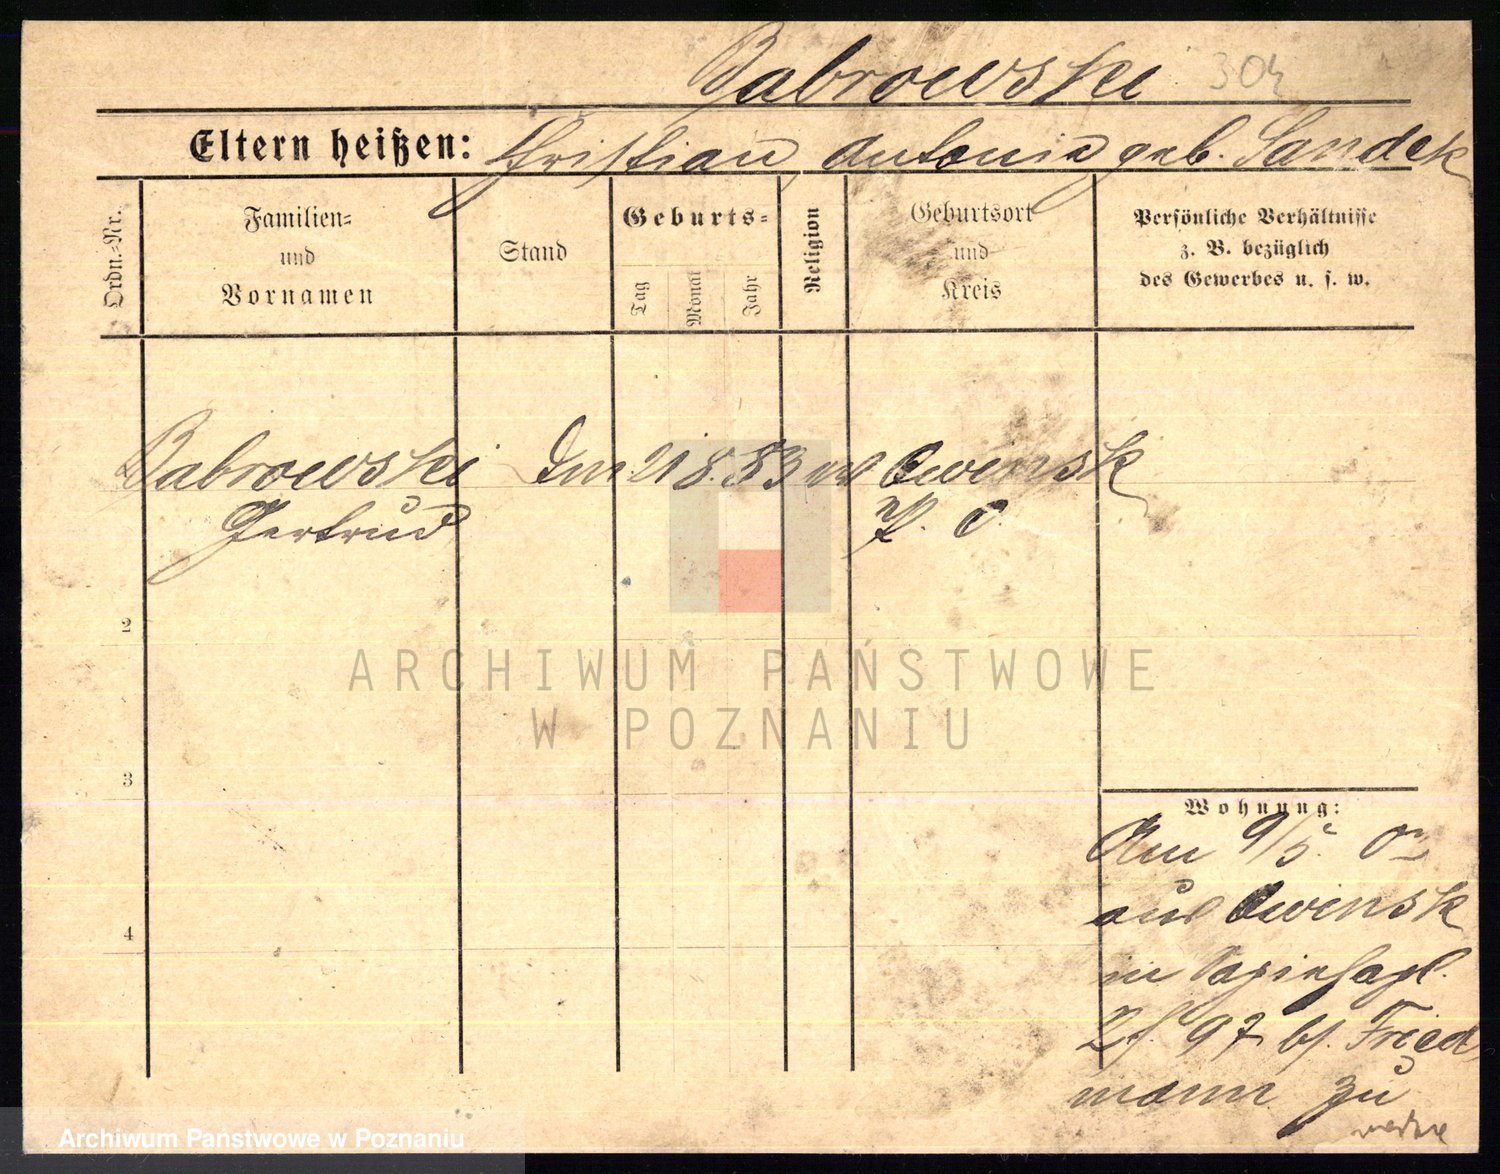 Babrowski 304
Eltern heißen: Christian, Antonia geb. Sandek
Ordn.-Nr.
Familien-
und
Vornamen
Stand
Geburts-
Tag
Monat
Jahr
Religion
Geburtsort
und
Kreis
Persönliche Verhältnisse
z. B. bezüglich
des Gewerbes u. s. w.
Babrowski 21 8. 83 Owinsk
Gertrud P. O.
2
3
4
Wohnung:
Am 9/5. 02
aus Owinsk
in Sapiehapl.
2 97 b/. Fried
mann zu
ARCHIWUM PAŃSTWOWE
W POZNANIU
Archiwum Państwowe w Poznaniu